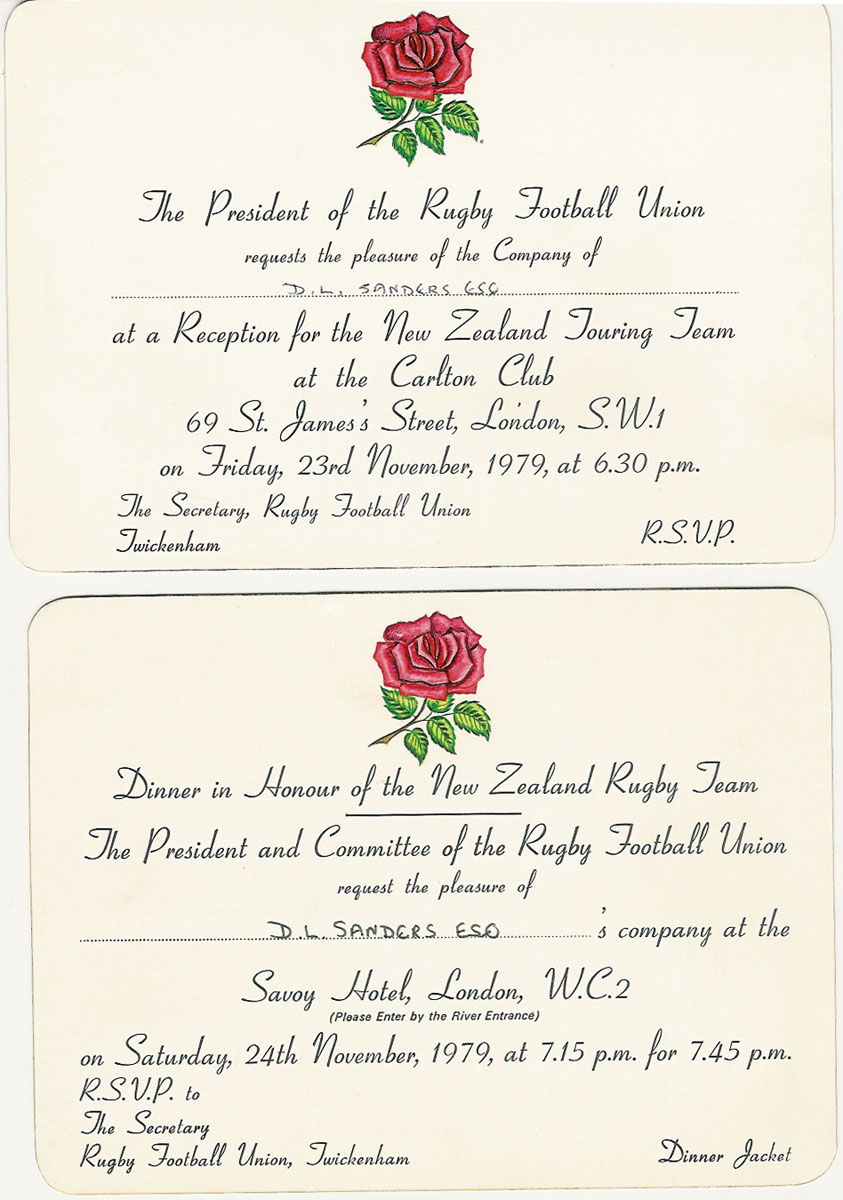 The President of the Rugby Football Union
requests the pleasure of the Company of
D.L. SANDERS ESQ
at a Reception for the New Zealand Touring Team
at the Carlton Club
69 St. James's Street, London, S.W.1
on Friday, 23rd November, 1979, at 6.30 p.m.
The Secretary, Rugby Football Union
Twickenham
R.S.V.P.
Dinner in Honour of the New Zealand Rugby Team
The President and Committee of the Rugby Football Union
request the pleasure of
D.L. SANDERS ESQ 's company at the
Savoy Hotel, London, W.C.2
(Please Enter by the River Entrance)
on Saturday, 24th November, 1979, at 7.15 p.m. for 7.45 p.m.
R.S.V.P. to
The Secretary
Rugby Football Union, Twickenham
Dinner Jacket